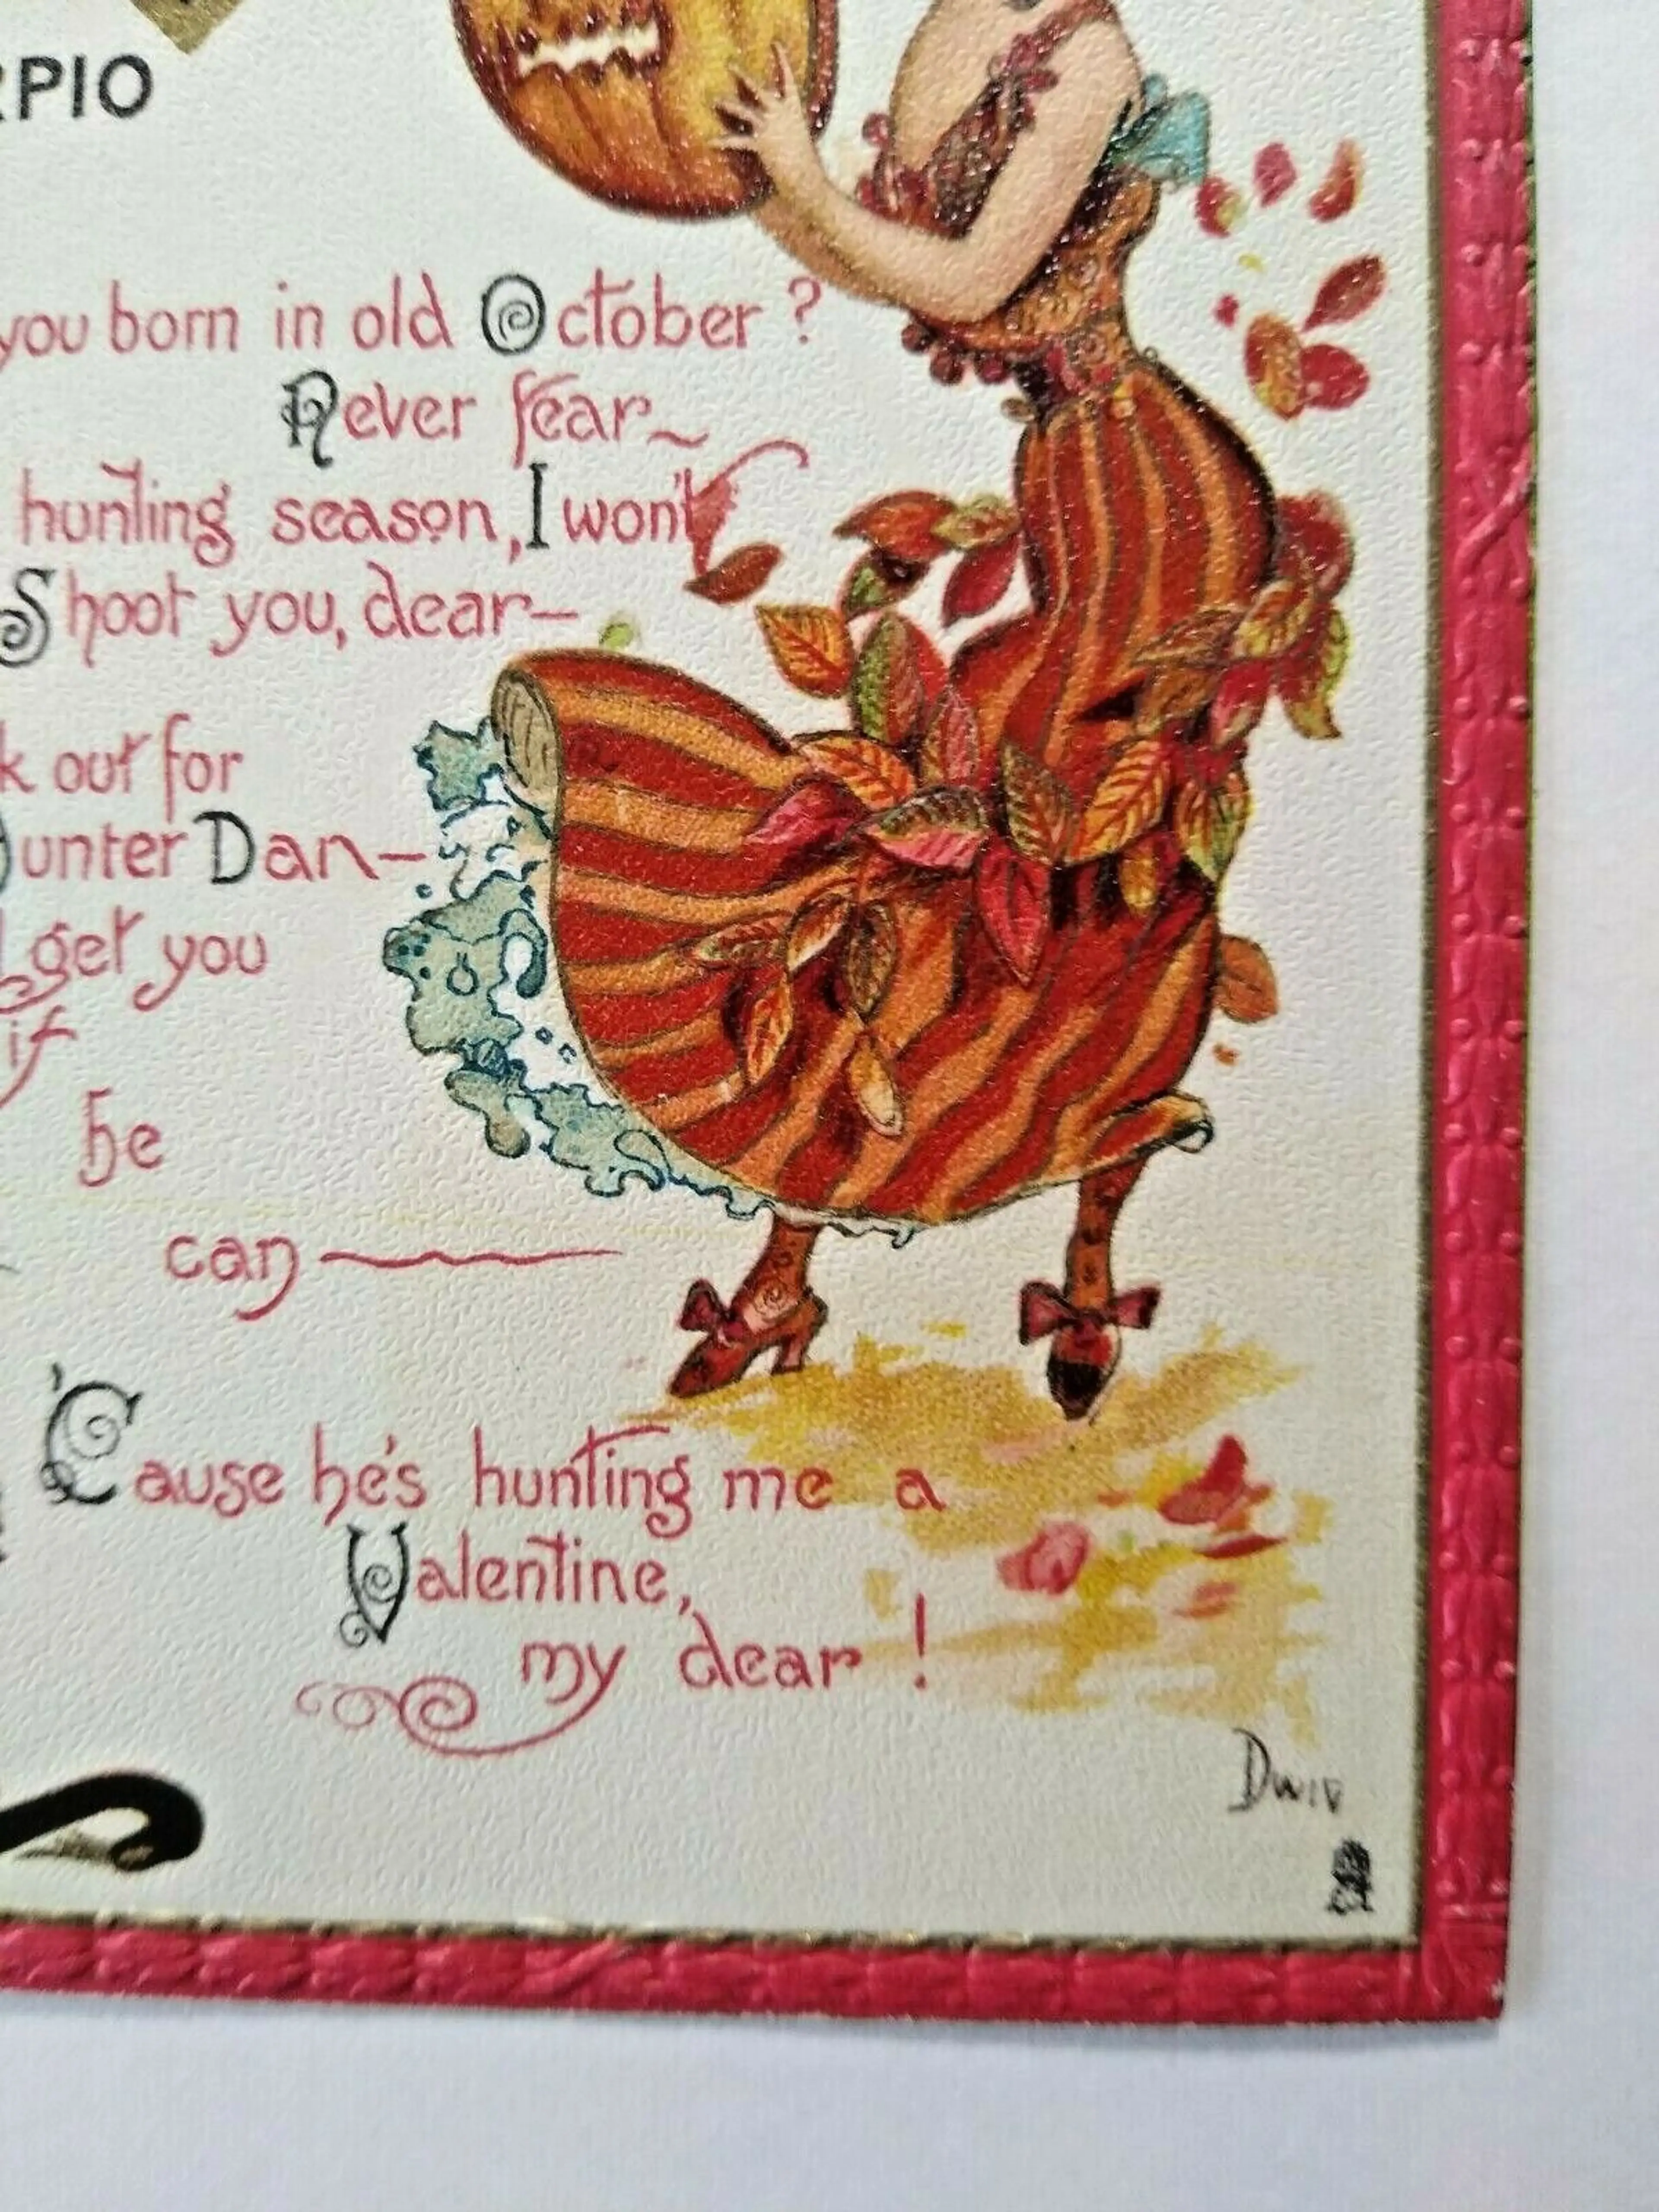 RPIO
you born in old October ?
Never fear~
hunting season, I won't
Shoot you, dear—
k out for
unter Dan—
get you
if
he
can
'Cause he's hunting me a
Valentine,
my dear !
Dwiv